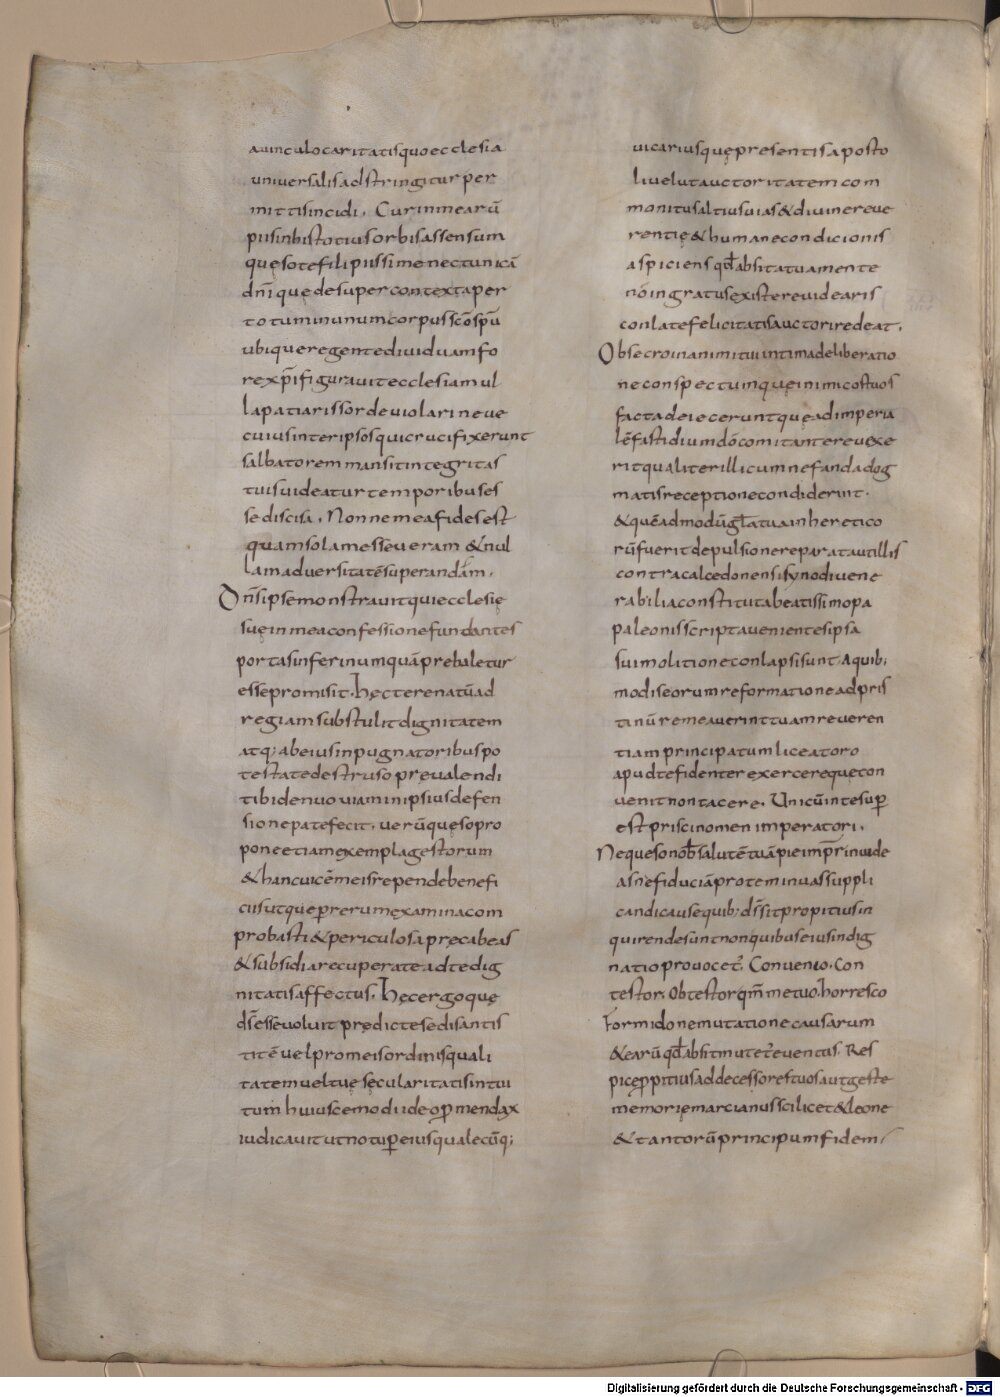 auinculo caritatis quo ecclesia
universalis adstringitur per
mittis incidi. Cur in mearū
piis in bis totius orbis assensum
quęso te fili piissime nec tunicā
dn̄i quę desuper contexta per
totum in unum corpus sc̄o sp̄u
ubique regente dividuam fo
re xp̄i figuravit ecclesiam ul
la patiaris sorde violari neve
cuius inter ipsos qui crucifixerunt
salbatorem mansit integritas
tuis videatur temporibus es
se discisa. Nonne mea fides est
quam solam esse veram & nul
lam adversitatē superandam.
Dn̄s ipse monstravit qui ecclesię
suę in mea confessione fundantes
portas inferi numquā prebaletur
esse promisit. hęc te renatū ad
regiam substulit dignitatem
atq; ab eius inpugnatoribus po
testate destruso prevalendi
tibi denuo viam in ipsius defen
sione patefecit. verū quęso pro
pone etiam exempla gestorum
& hanc vicē meis repende benefi
ciis ut que per rerum examina com
probasti & periculosa pręcabeas
& subsidia recuperate ad te dig
nitatis affectus. hęc ergo quę
ds̄ esse voluit prędicte sedis antis
titē vel pro meis ordinis quali
tatem vel tuę sęcularitatis intui
tum huiuscemodi ideo per mendax
iudicavit ut notuper eius qualecūq;
vicariusquę presentis aposto
li velut auctoritatem com
monitus altius vias & divine reve
rentię & humane condicionis
aspiciens qđ absit a tua mente
nō ingratus existere videaris
conlate felicitatis auctori redeat.
Obsecro in animi tui intima deliberatio
ne conspectumque inimicos tuos
facta deiecerunt quę ad imperia
lē fastidium dō comitante revexe
rit qualiter illi cum nefanda dog
matis receptione condiderint.
& quēadmodū gl̄a tua in heretico
rū fuerit depulsione reparata ut illis
contra calcedonensi synodi vene
rabilia constituta beatissimo pa
pa leonis scripta venientes ipsa
sui molitione conlapsi sunt. A quib;
modis eorum reformatione ad pris
tinū remeaverint tuam reveren
tiam principatum licea toro
apud te fidenter exercere que con
venit non tacere. Unicū inte super
est prisci nomen imperatori.
Ne queso nob̄ salutē tuā pie impr̄ invide
as nefiduciā protem in vas suppli
candi cause quib; ds̄ sit propitius in
quirendes unt non quibus eius indig
natio provocet̄. Convenio. Con
testor. Obtestor qm̄ metuo. horresco
Formidone mutatione causarum
& earū qđ absit mutet̄ eventus. Res
pice p̱pitius ad decessores tuos aut geste
memorię marcianus scilicet & leone
& tantorū principum fidem
Digitalisierung gefördert durch die Deutsche Forschungsgemeinschaft - DFG